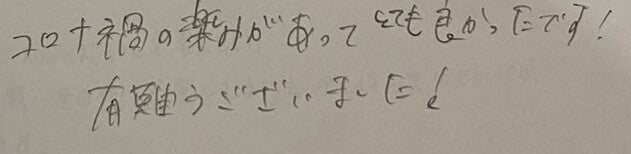 コロナ禍の楽みがあってとても良かったです!
有難うございました!